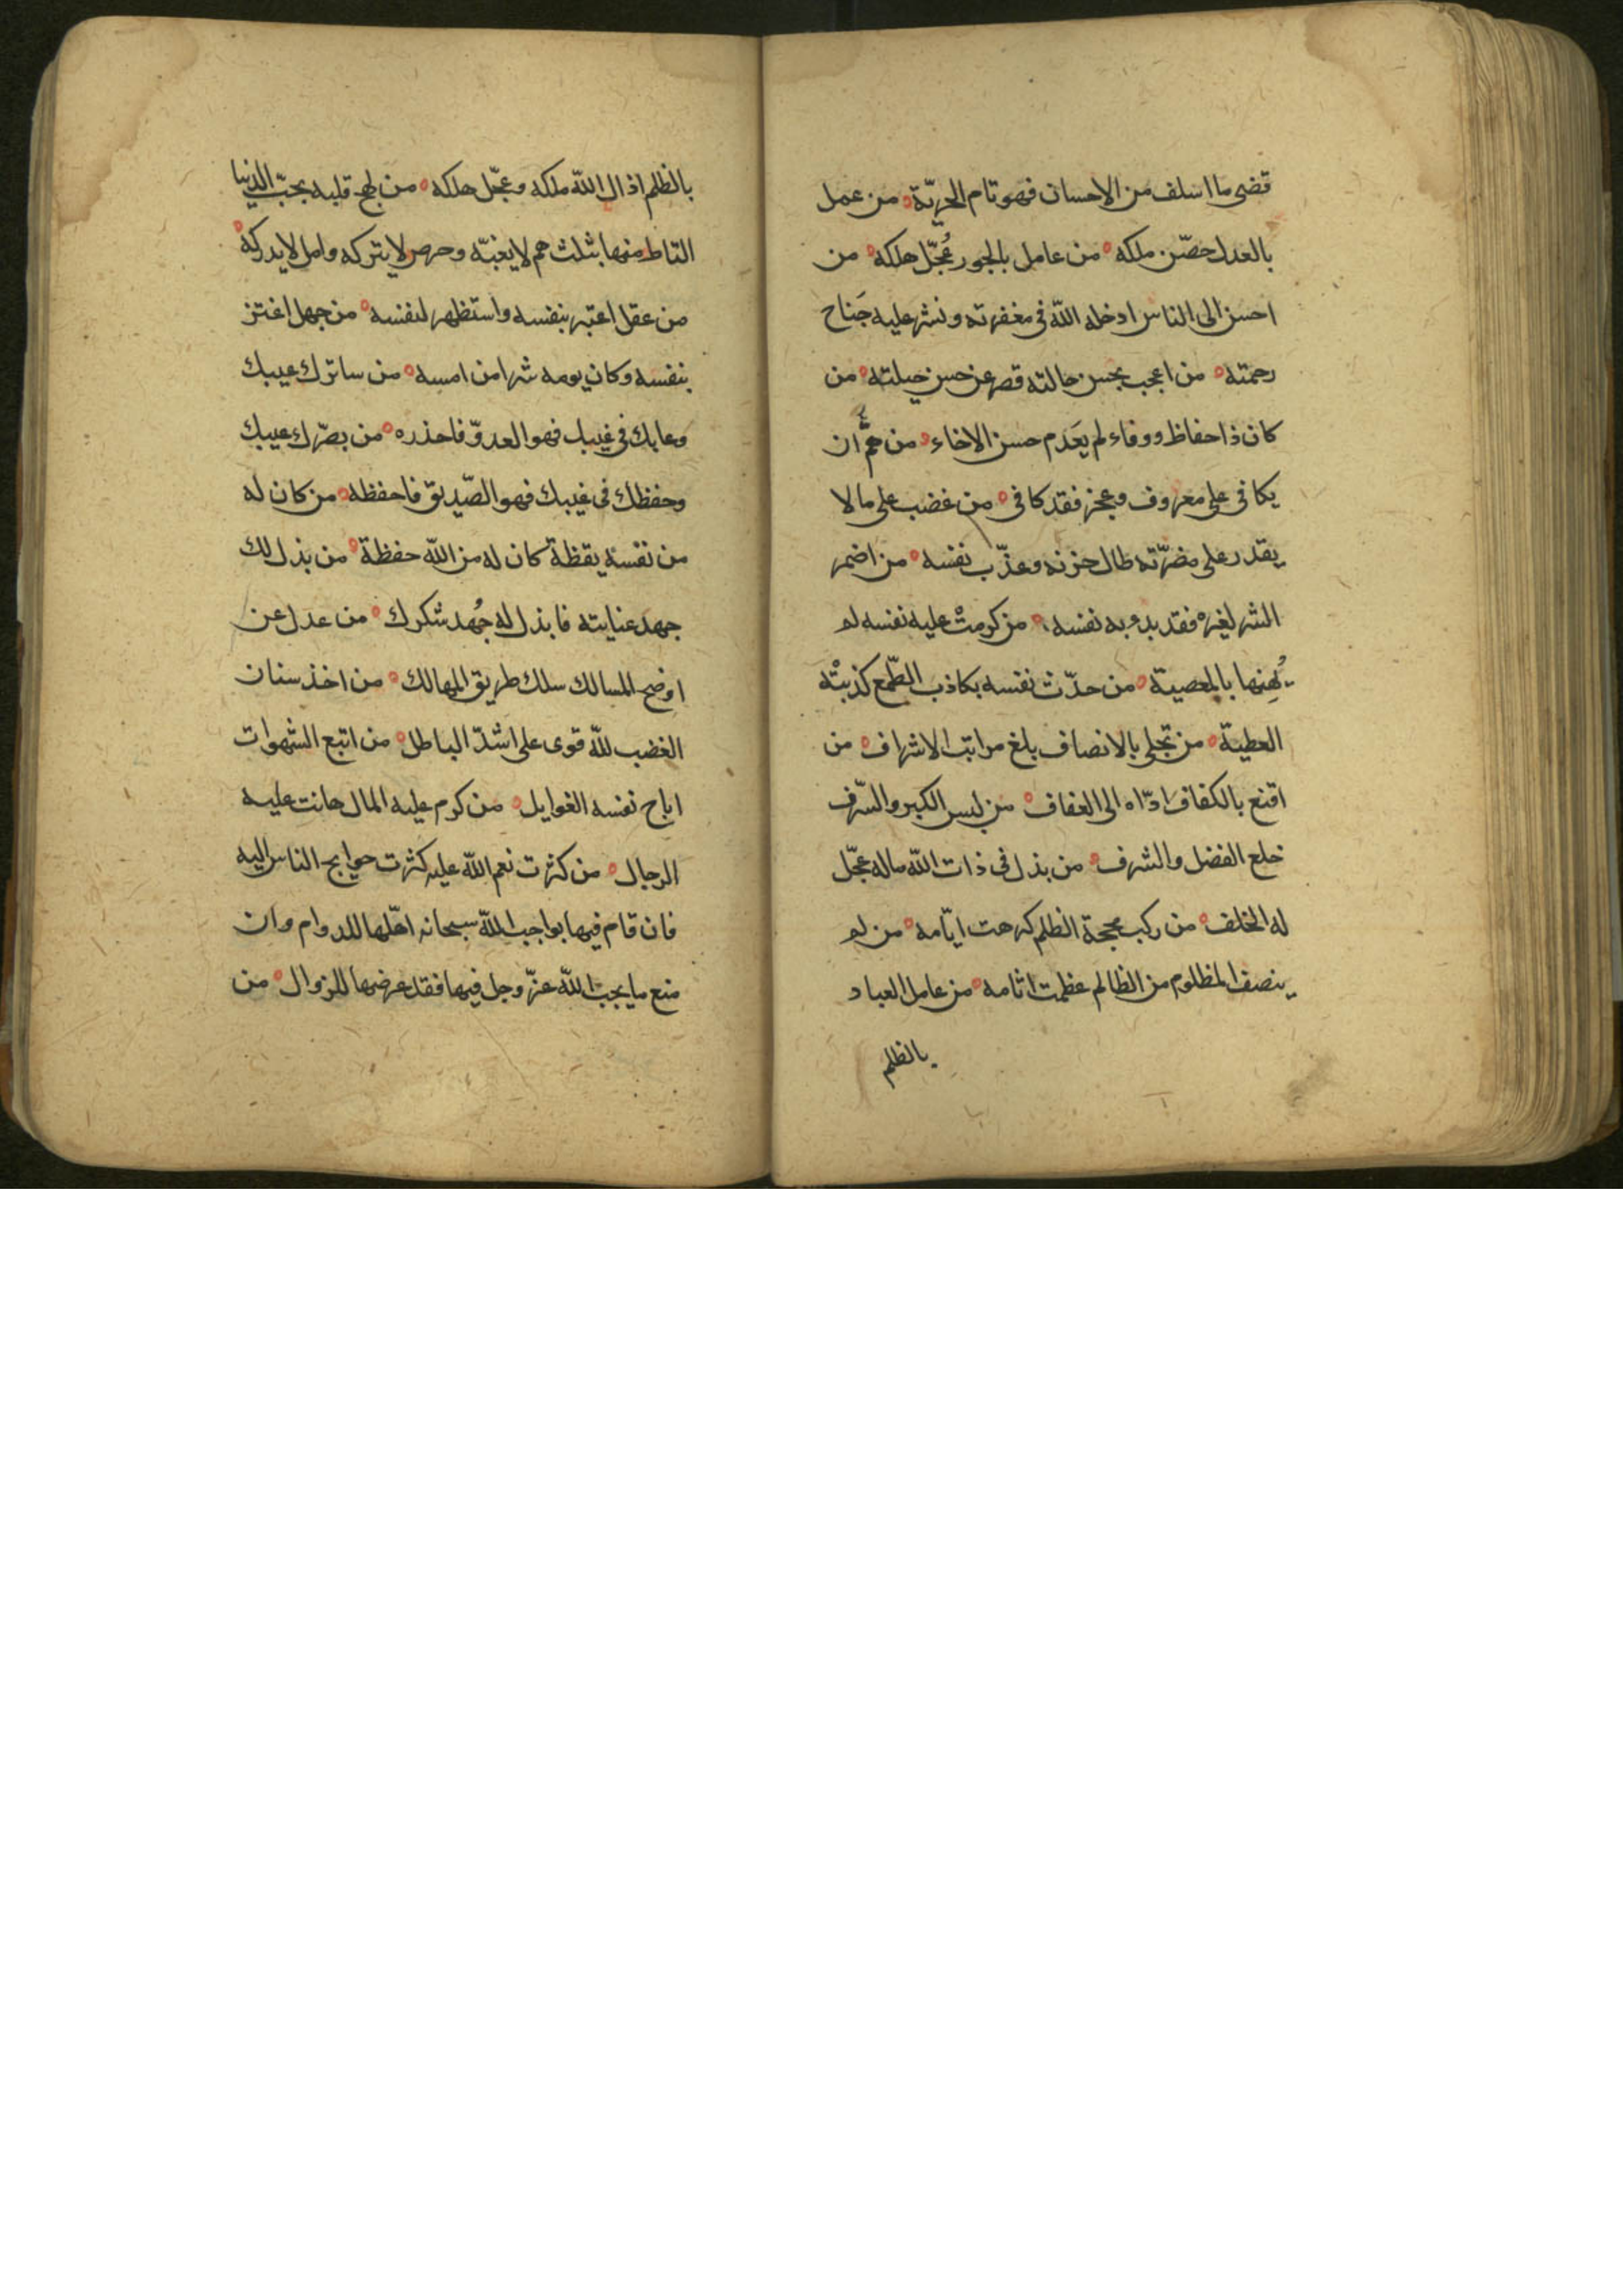 قضى ما اسلف من الاحسان فهو تام الحريّة ه من عمل
بالعدل حصّن ملكه ه من عامل بالجور عُجّل هلكه ه من
احسن الى الناس ادخله الله فى مغفرته ونشر عليه جَناح
رحمته ه من اعجب بحسن حالته قصر عن حسن حيلته ه من
كان ذا حفاظ ووفاء لم يَعدَم حسن الاخاء ه من همَّ ان
يكافى على معروف وعجز فقد كافى ه من غضب على ما لا
يقدر على مضرّته طال حزنه وعذّب نفسه ه من اضمر
الشر لغيره فقد بدء به نفسه ه من كرمتْ عليه نفسه لم
يُهِنها بالمعصية ه من حدّث نفسه بكاذب الطّمع كذبتْه
العطية ه من تحلى بالانصاف بلغ مراتب الاشراف ه من
اقنع بالكفاف ادّاه الى العفاف ه من لبس الكبر والسّرف
خلع الفضل والشرف ه من بذل فى ذات الله ماله عجّل
له الخلف ه من ركب محجة الظلم كرهت ايّامه ه من لم
ينصف المظلوم من الظالم عظمت اثامه ه من عامل العباد
بالظلم
بالظلم اذال الله ملكه وعجّل هلكه ه من لهج قلبه بحبّ الدنيا
التاط منها بثلث هم لا يغبّه وحرص لا يتركه وامل لا يدركه ه
من عقل اعتبر بنفسه واستظهر لنفسه ه من جهل اغتر
بنفسه وكان يومه شرا من امسه ه من ساترك عيبك
وعابك فى غيبك فهو العدوّ فاحذره ه من بصّرك عيبك
وحفظك فى غيبك فهو الصّديق فاحفظه ه من كان له
من نفسه يقظة كان له من الله حفظة ه من بذل لك
جهد عنايته فابذل له جُهد شكرك ه من عدل عن
اوضح المسالك سلك طريق المهالك ه من اخذ سنان
الغضب لله قوى على اشدّ الباطل ه من اتبع الشهوات
اباح نفسه الغوايل ه من كرم عليه المال هانت عليه
الرجال ه من كثرت نعم الله عليه كثرت حوايج الناس اليه
فان قام فيها بواجب الله سبحانه اهّلها للدوام وان
منع ما يجب الله عزّ وجل فيها فقد عرضها للزوال ه من